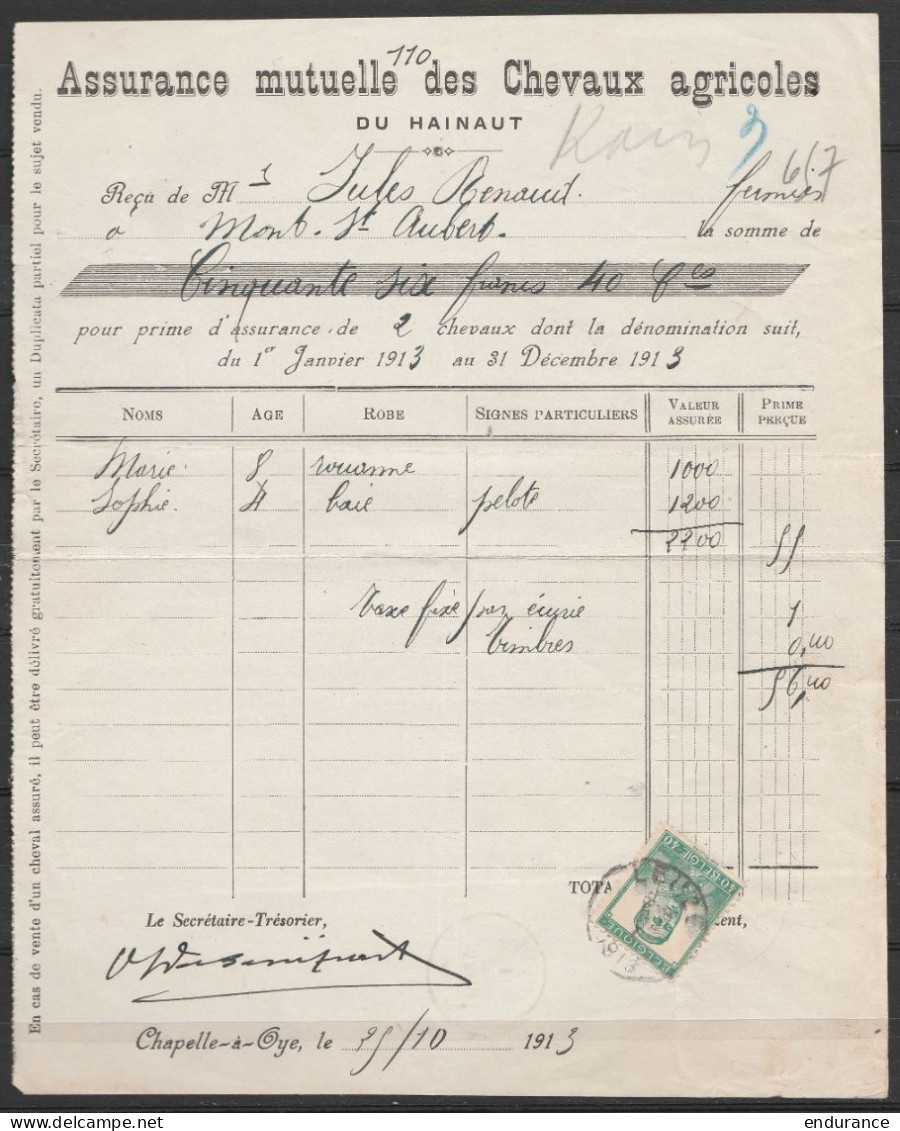 110
Assurance mutuelle des Chevaux agricoles
DU HAINAUT
Kain
6/7
Reçu de Mr Jules Renaud. fermier
à Mont. St Aubert. la somme de
Cinquante six francs 40 Ces
pour prime d'assurance de 2 chevaux dont la dénomination suit,
du 1er Janvier 1913 au 31 Décembre 1913
NOMS AGE ROBE SIGNES PARTICULIERS VALEUR ASSURÉE PRIME PERÇUE
Marie. 8 rouanne 1000
Sophie. 4 baie pelote 1200
2200 55
Taxe fixe par écurie 1
Timbres 0,40
56,40
TOTA
Le Secrétaire-Trésorier, ent,
BELGIQUE
40 BELGIE 40
LEUZE
1913
Chapelle-à-Oye, le 25/10 1913
En cas de vente d'un cheval assuré, il peut être délivré gratuitement par le Secrétaire, un Duplicata partiel pour le sujet vendu.
endurance